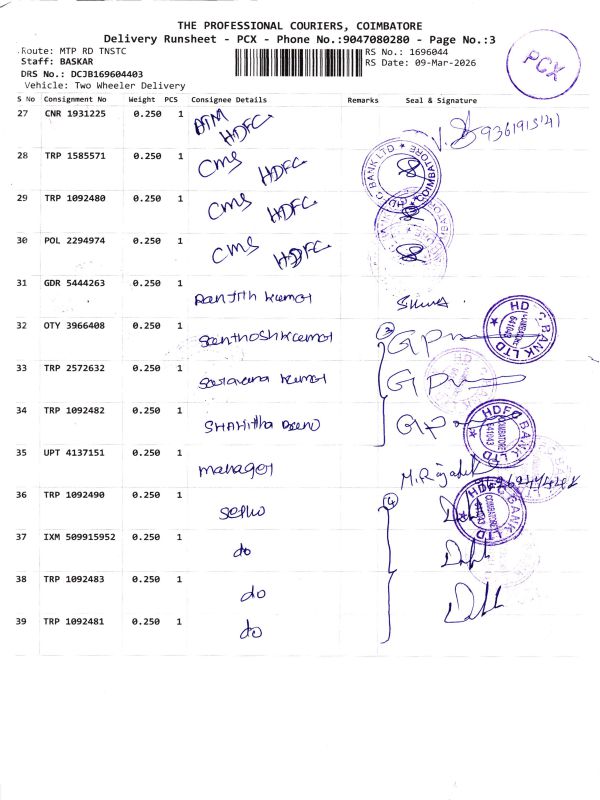 THE PROFESSIONAL COURIERS, COIMBATORE
Delivery Runsheet - PCX - Phone No.:9047080280 - Page No.:3
Route: MTP RD TNSTC
RS No.: 1696044
Staff: BASKAR
RS Date: 09-Mar-2026
DRS No.: DCJB169604403
Vehicle: Two Wheeler Delivery
PCX
S No Consignment No Weight PCS Consignee Details Remarks Seal & Signature
27 CNR 1931225 0.250 1 ATM HDFC
28 TRP 1585571 0.250 1 CMS HDFC
29 TRP 1092480 0.250 1 CMS HDFC
30 POL 2294974 0.250 1 CMS HDFC
31 GDR 5444263 0.250 1 Ranjith kumar
32 OTY 3966408 0.250 1 Santhoshkumar
33 TRP 2572632 0.250 1 Saravana kumar
34 TRP 1092482 0.250 1
35 UPT 4137151 0.250 1 manager
36 TRP 1092490 0.250 1
37 IXM 509915952 0.250 1 do
38 TRP 1092483 0.250 1 do
39 TRP 1092481 0.250 1 do
HDFC BANK LTD
COIMBATORE
641043